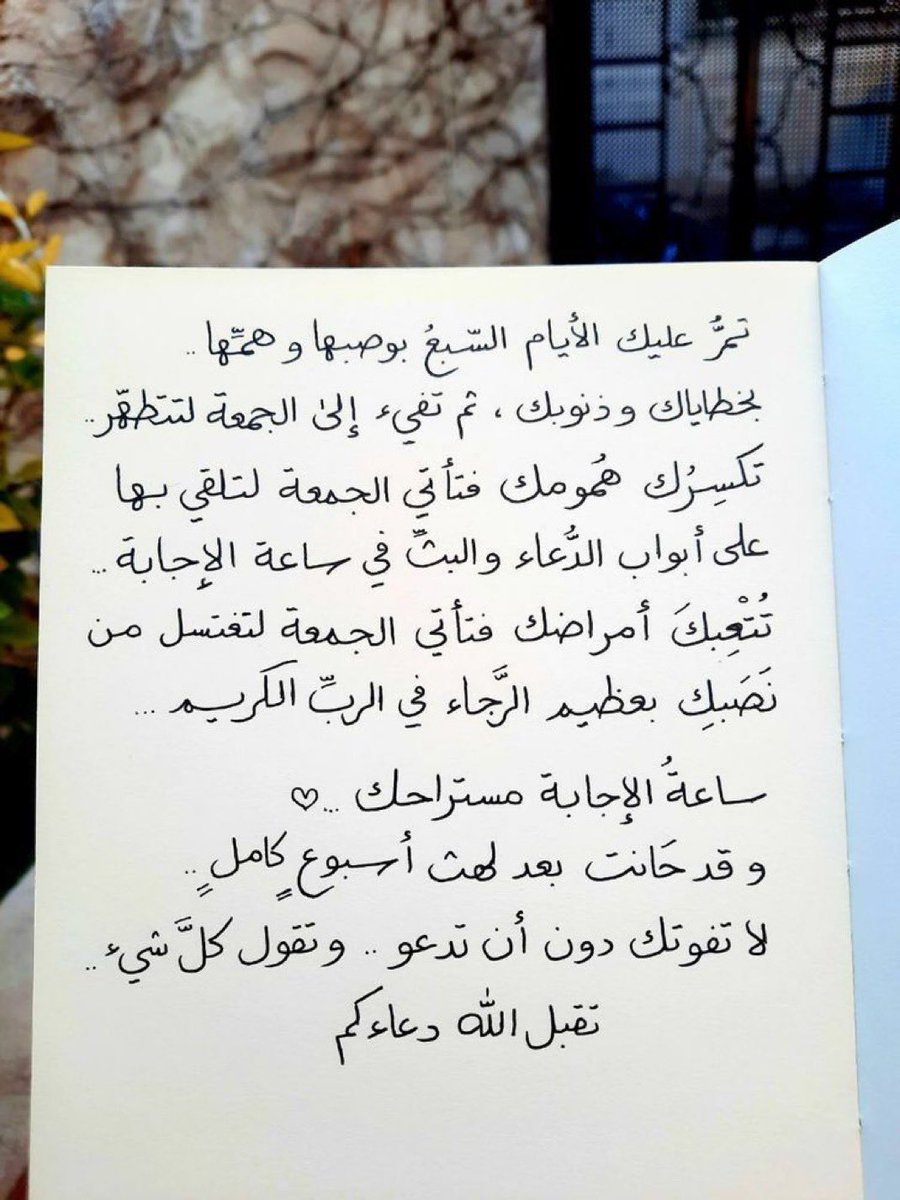 تمرُّ عليك الأيام السّبعُ بوصبها و همِّها ..
بخطاياك و ذنوبك ، ثم تفيء إلىٰ الجمعة لتتطهّر ..
تَكسِرُك هُمومك فتأتي الجمعة لتلقي بها
على أبواب الدُّعاء والبثِّ في ساعة الإجابة ...
تُتْعِبكَ أمراضك فتأتي الجمعة لتغتسل من
نَصَبكِ بعظيم الرَّجاء في الربِّ الكريم ...
ساعةُ الإجابة مستراحك ...♡
و قد حَانت بعد لهث أسبوعٍ كاملٍ ..
لا تفوتك دون أن تدعو .. و تقول كلَّ شيء ..
تقبل الله دعاءكم